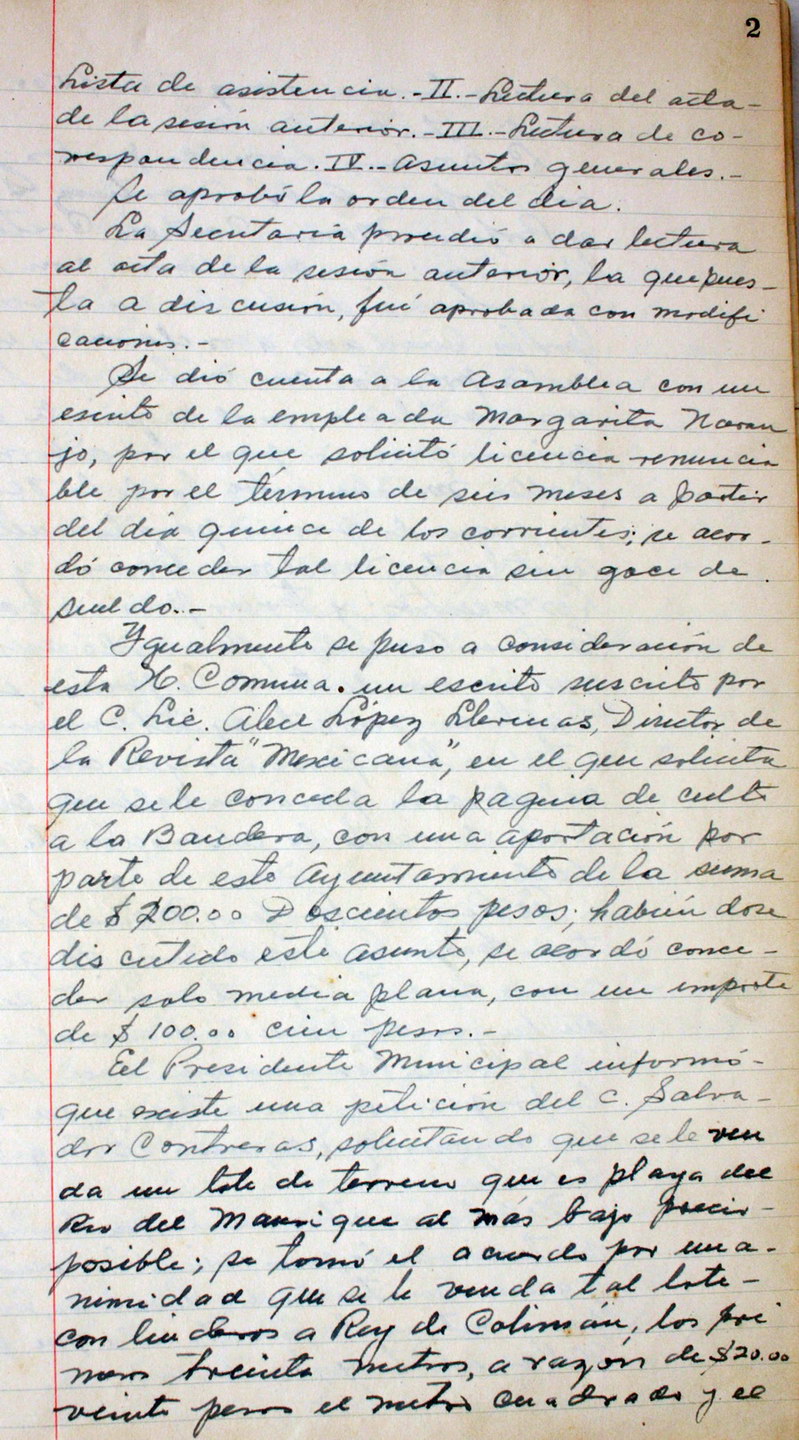 2
Lista de asistencia.-II.-Lectura del acta-
de la sesión anterior.-III.-Lectura de co-
respondencia.IV.-Asuntos generales.-
Se aprobó la orden del dia.
La Secretaría procedió a dar lectura
al acta de la sesión anterior, la que pues-
ta a discusión, fué aprobada con modifi
caciones.-
Se dió cuenta a la Asamblea con un
escrito de la empleada Margarita Naran
jo, por el que solicitó licencia renuncia
ble por el término de seis meses a partir
del día quince de los corrientes; se acor-
dó conceder tal licencia sin goce de
sueldo.-
Ygualmente se puso a consideración de
esta H. Comuna. un escrito suscrito por
el C. Lic. Abel López Llerenas, Director de
la Revista "Mexicana", en el que solicita
que se le conceda la pagina de culto
a la Bandera, con una aportación por
parte de este Ayuntamiento de la suma
de $200.00 Doscientos pesos; habiéndose
discutido este asunto, se acordó conce-
der solo media plana, con un importe
de $100.00 cien pesos.-
El Presidente Municipal informó-
que existe una petición del C. Salva-
dor Contreras, solicitando que se le ven
da un lote de terreno que es playa del
Rio del Manrique al más bajo precio-
posible; se tomó el acuerdo por una-
nimidad que se le venda tal lote-
con linderos a Rey de Colimán, los pri
meros treinta metros, a razón de $20.00
veinte pesos el metro cuadrado y el